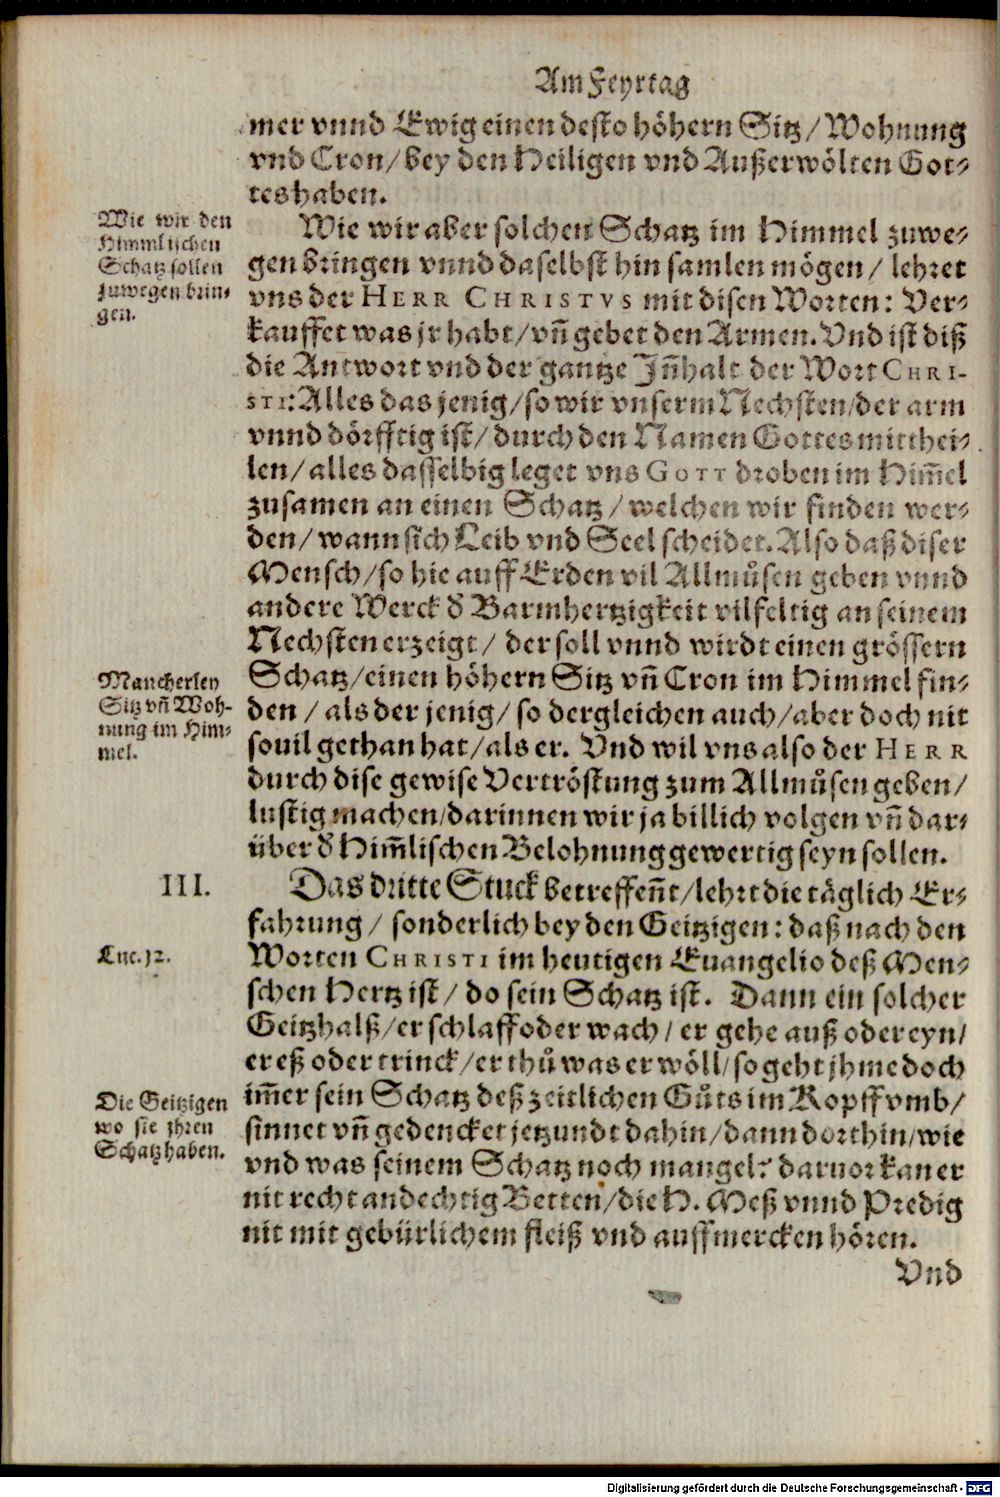 Am Feyrtag
mer vnnd Ewig einen desto höhern Sitz/ Wohnung
vnd Cron/ bey den Heiligen vnd Außerwölten Got-
tes haben.
Wie wir den
Himmlischen
Schatz sollen
zuwegen brin-
gen.
Wie wir aber solchen Schatz im Himmel zuwe-
gen bringen vnnd daselbst hin samlen mögen/ lehret
vns der HERR CHRISTVS mit disen Worten: Ver-
kauffet was jr habt/ vñ gebet den Armen. Vnd ist diß
die Antwort vnd der gantze Jñhalt der Wort CHRI-
STI: Alles das jenig/ so wir vnserm Nechsten/ der arm
vnnd dörfftig ist/ durch den Namen Gottes mitthei-
len/ alles dasselbig leget vns GOTT droben im Him̃el
zusamen an einen Schatz/ welchen wir finden wer-
den/ wann sich Leib vnd Seel scheidet. Also daß diser
Mensch/ so hie auff Erden vil Allmůsen geben vnnd
andere Werck d̕ Barmhertzigkeit vilfeltig an seinem
Nechsten erzeigt/ der soll vnnd wirdt einen grössern
Mancherley
Sitz vñ Woh-
nung im Him-
mel.
Schatz/ einen höhern Sitz vñ Cron im Himmel fin-
den/ als der jenig/ so dergleichen auch/ aber doch nit
souil gethan hat/ als er. Vnd wil vns also der HERR
durch dise gewise Vertröstung zum Allmůsen geben/
lustig machen/ darinnen wir ja billich volgen vñ dar-
über d̕ Him̃lischen Belohnung gewertig seyn sollen.
III.
Das dritte Stuck betreffeñt/ lehrt die täglich Er-
fahrung/ sonderlich bey den Geitzigen: daß nach den
Luc. 12.
Worten CHRISTI im heutigen Euangelio deß Men-
schen Hertz ist/ do sein Schatz ist. Dann ein solcher
Geitzhalß/ er schlaff oder wach/ er gehe auß oder eyn/
er eß oder trinck/ er thů was er wöll/ so geht jhme doch
Die Geitzigen
wo sie jhren
Schatz haben.
im̃er sein Schatz deß zeitlichen Gůts im Kopff vmb/
sinnet vñ gedencket jetzundt dahin/ dann dorthin/ wie
vnd was seinem Schatz noch mangel: daruor kan er
nit recht andechtig Betten/ die H. Meß vnnd Predig
nit mit gebürlichem fleiß vnd auffmercken hören.
Vnd
Digitalisierung gefördert durch die Deutsche Forschungsgemeinschaft - DFG